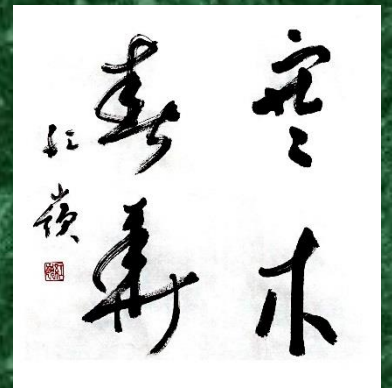 寒木
春華
紅嶺